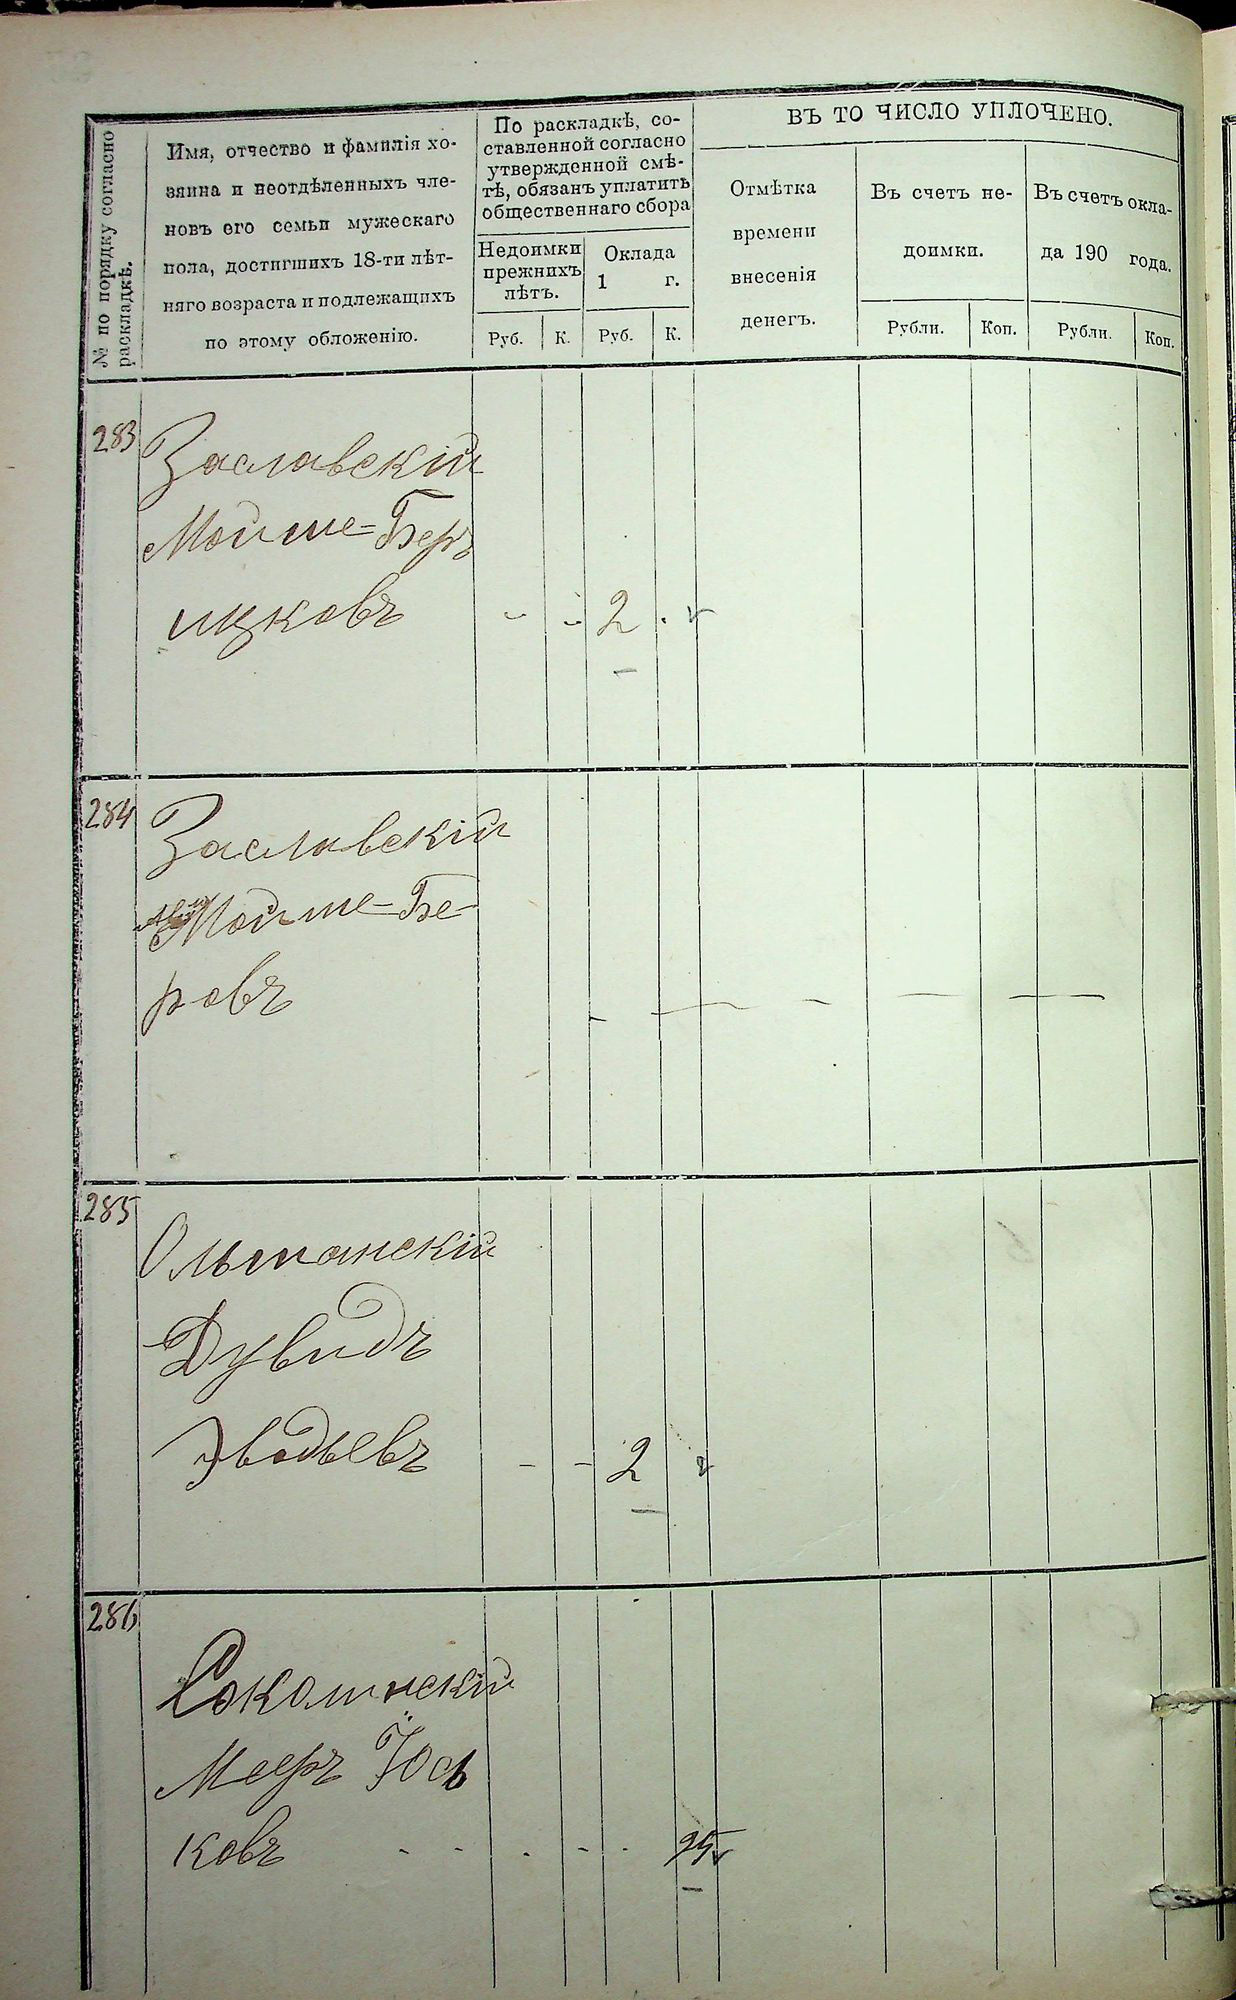 № по порядку согласно
раскладкѣ.
Имя, отчество и фамилія хо-
зяина и неотдѣленныхъ чле-
новъ его семьи мужескаго
пола, достигшихъ 18-ти лѣт-
няго возраста и подлежащихъ
по этому обложенію.
По раскладкѣ, со-
ставленной согласно
утвержденной смѣ-
тѣ, обязанъ уплатить
общественнаго сбора
Недоимки
прежнихъ
лѣтъ.
Оклада
1 г.
Руб. К. Руб. К.
ВЪ ТО ЧИСЛО УПЛОЧЕНО.
Отмѣтка
времени
внесенія
денегъ.
Въ счетъ не-
доимки.
Въ счетъ окла-
да 190 года.
Рубли. Коп. Рубли. Коп.
283
Заславскій
Мойше-Беръ
ицковъ - - 2
284
Заславскій
Мойше-Бе-
ровъ
285
Ольшанскій
Дувидъ
- - 2
286
Соколинскій
Мееръ Іось
ковъ